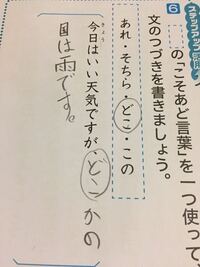 ステップアップ
6
の「こそあど言葉」を一つ使って、
文のつづきを書きましょう。
あれ・そちら・どこ・この
きょう
今日はいい天気ですが、どこかの
国は雨です。